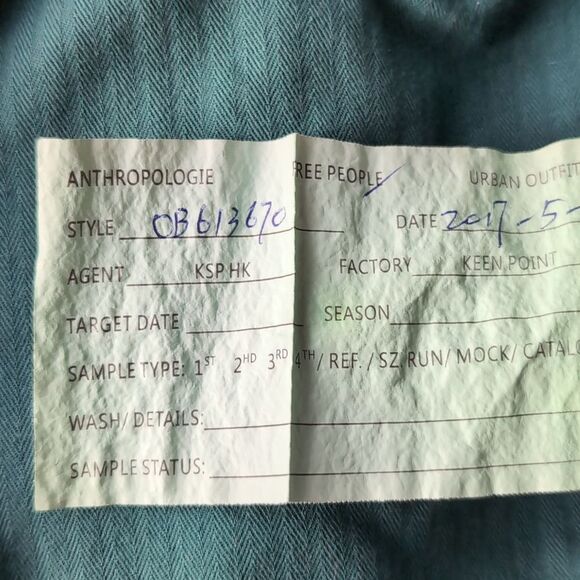 ANTHROPOLOGIE FREE PEOPLE URBAN OUTFIT
STYLE OB613670 DATE 2017-5-
AGENT KSP HK FACTORY KEEN POINT
TARGET DATE SEASON
SAMPLE TYPE: 1ST 2HD 3RD 4TH/ REF. / SZ. RUN/ MOCK/ CATALO
WASH/ DETAILS:
SAMPLE STATUS: